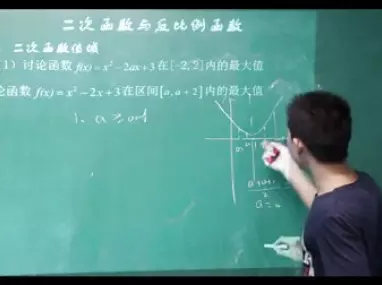 二次函数与反比例函数
二次函数值域
(1) 讨论函数 f(x)=x²-2ax+3 在[-2,2]内的最大值
论函数 f(x)=x²-2x+3 在区间[a,a+2]内的最大值
1、a ≥
2